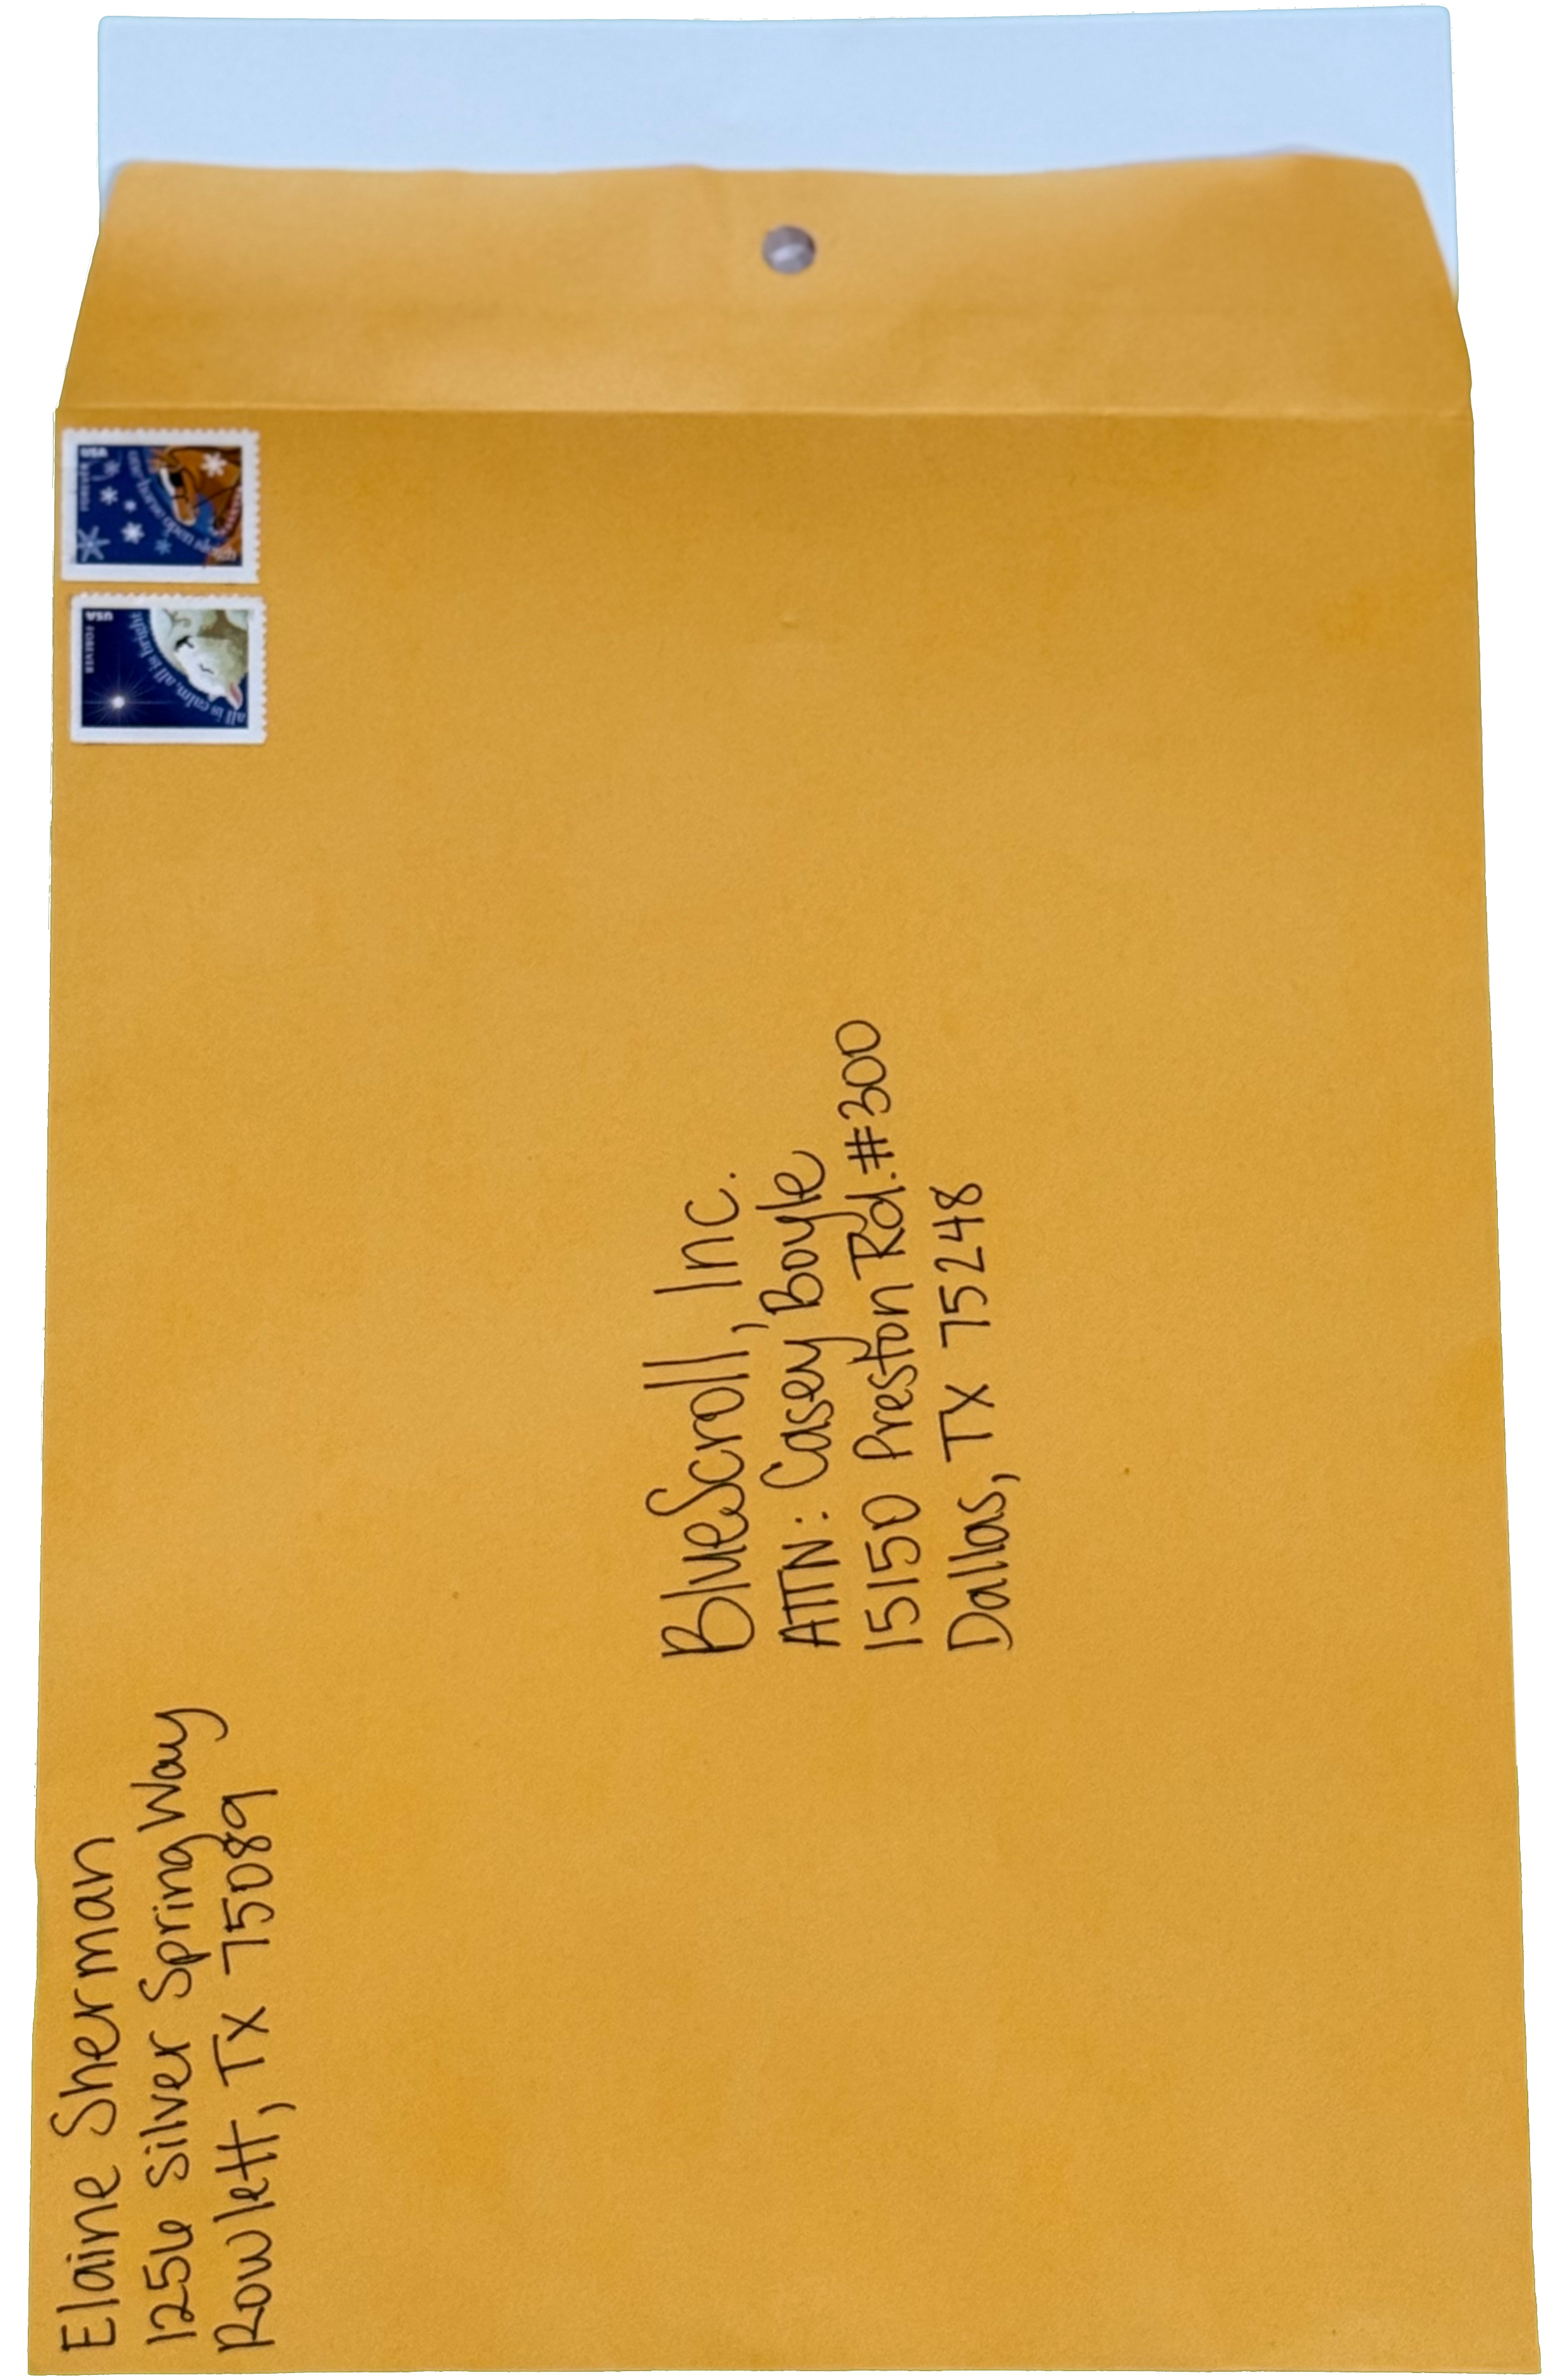 Elaine Sherman
1256 Silver Spring Way
Rowlett, TX 75089
USA
FOREVER
all is calm, all is bright
USA
FOREVER
upon
BlueScroll, Inc.
ATTN: Casey Boyle
15150 Preston Rd. #300
Dallas, TX 75248